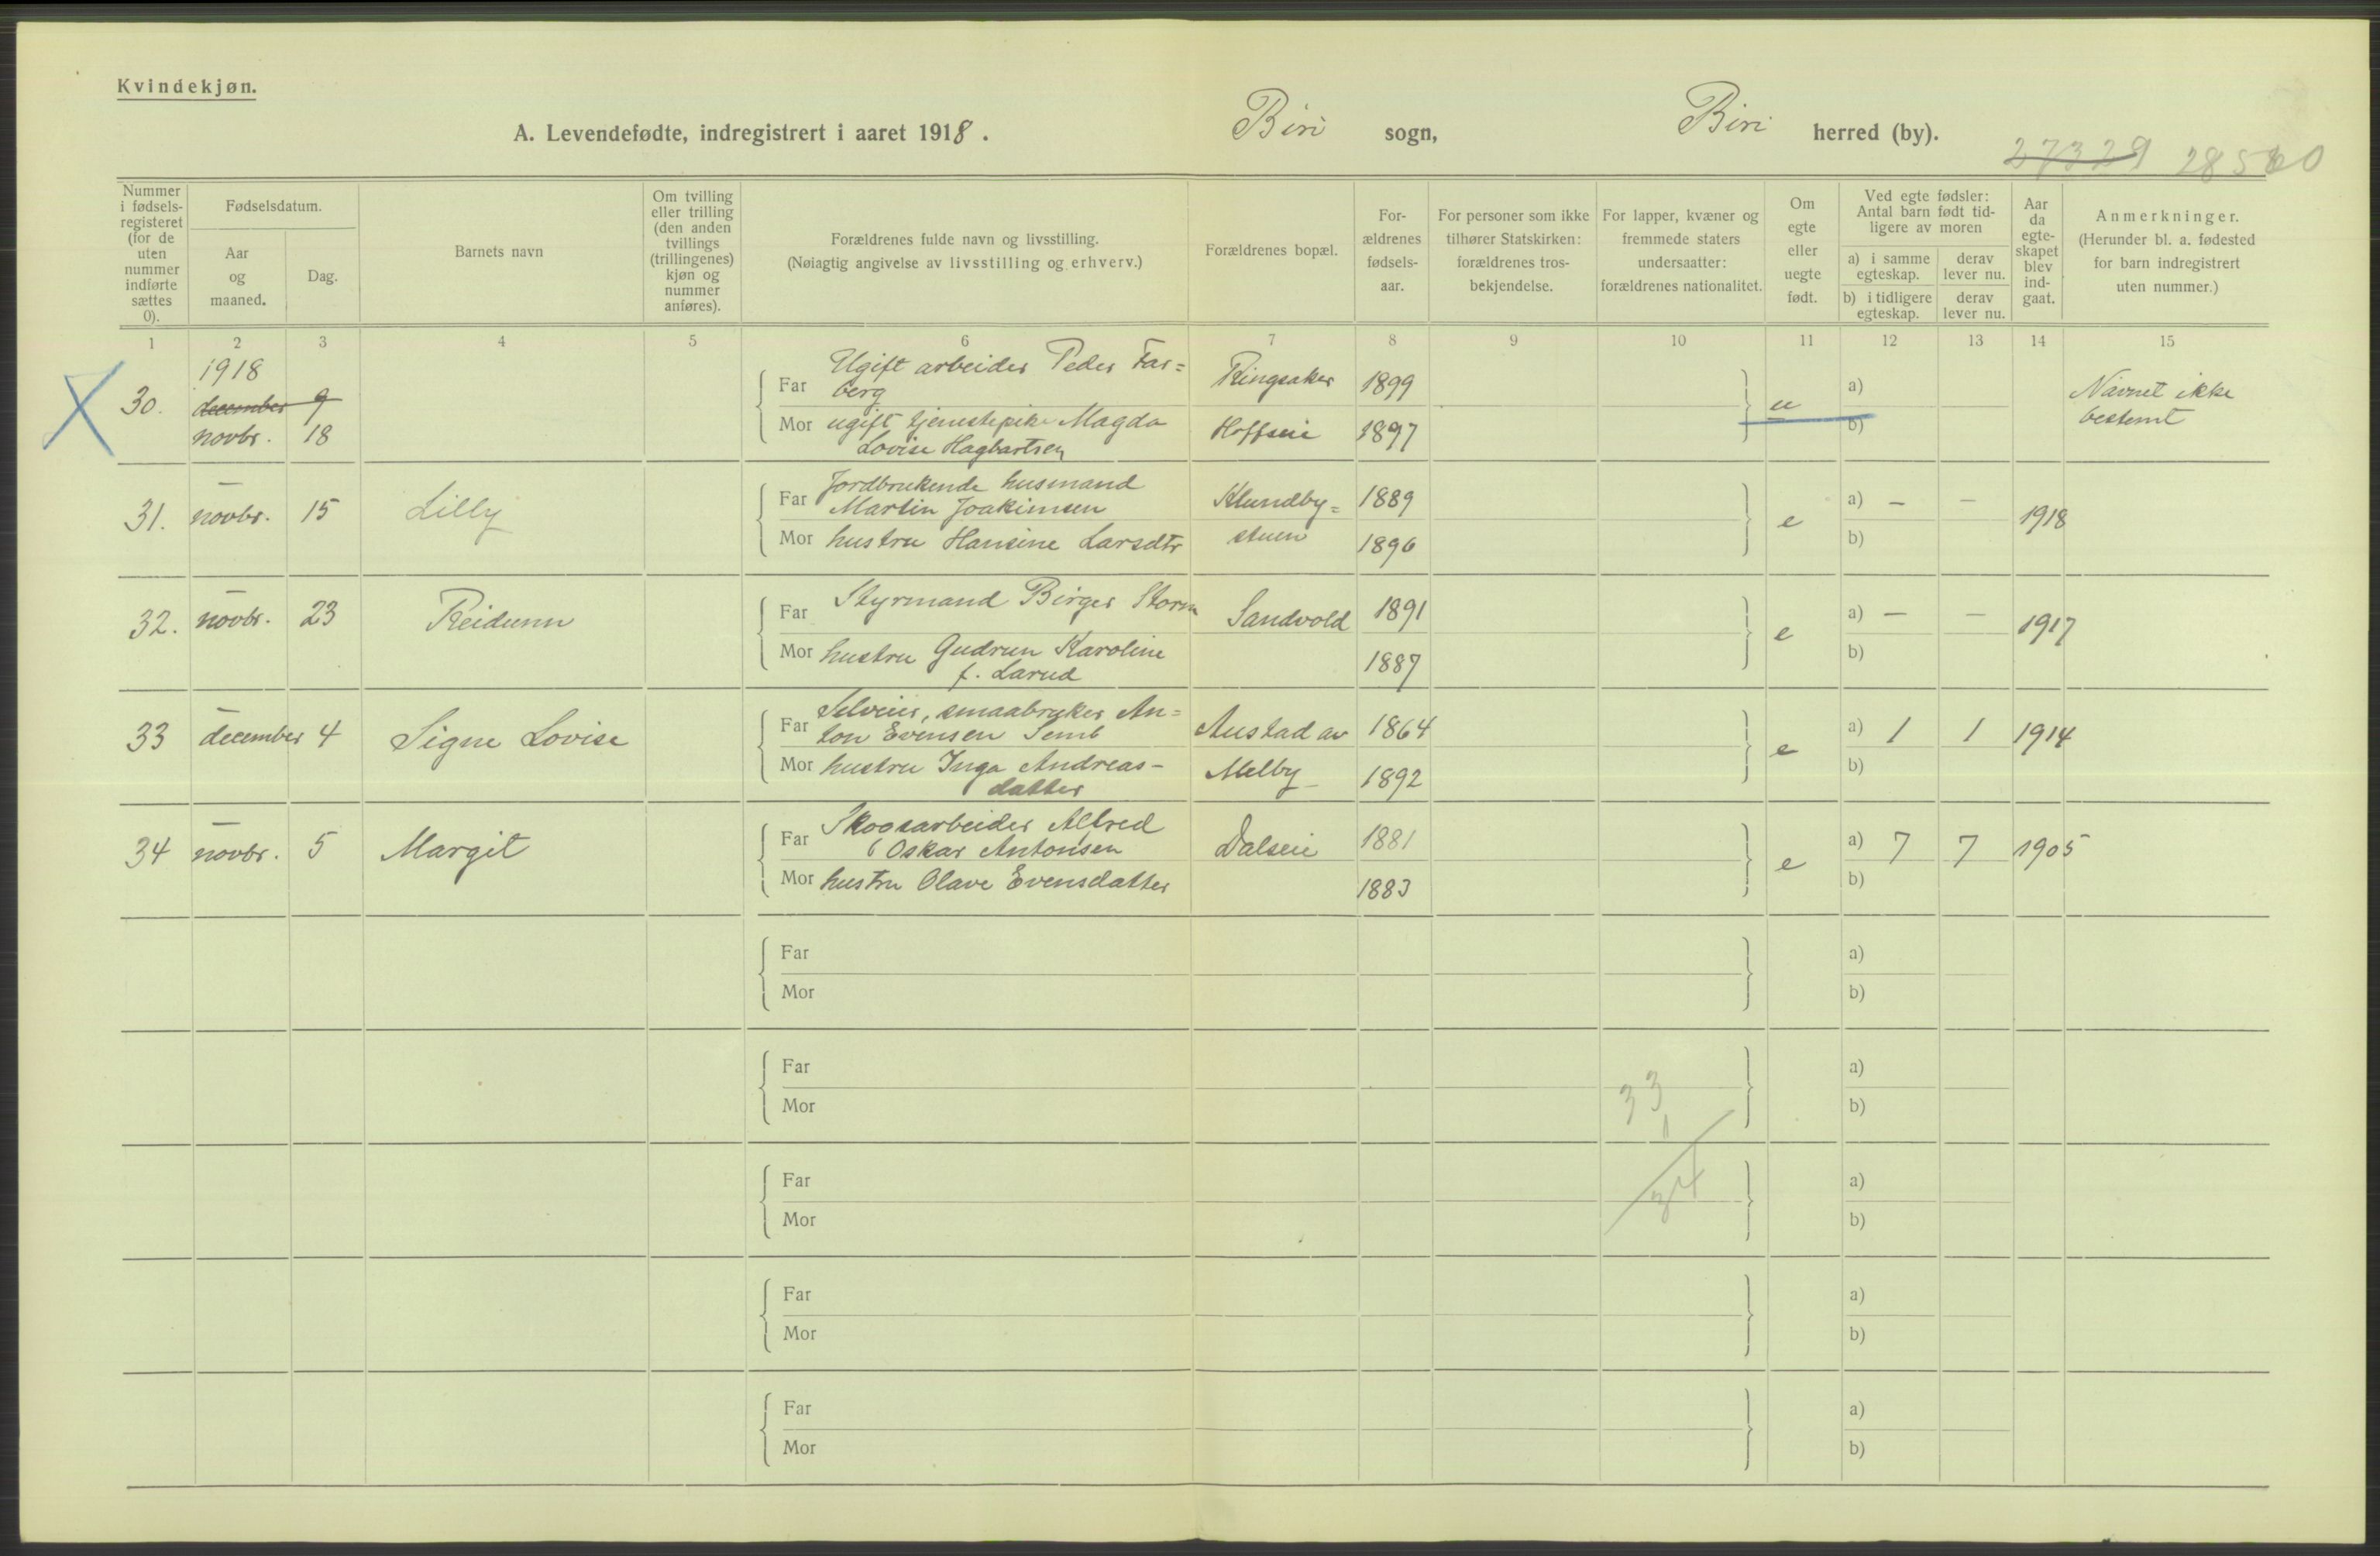 Kvindekjøn.
A. Levendefødte, indregistrert i aaret 1918. Biri sogn, Biri herred (by).
27329 28560
Nummer i fødselsregisteret (for de uten nummer indførte sættes 0).
Fødselsdatum.
Aar og maaned.
Dag.
Barnets navn
Om tvilling eller trilling (den anden tvillings (trillingenes) kjøn og nummer anføres).
Forældrenes fulde navn og livsstilling.
(Nøiagtig angivelse av livsstilling og erhverv.)
Forældrenes bopæl.
Forældrenes fødselsaar.
For personer som ikke tilhører Statskirken: forældrenes trosbekjendelse.
For lapper, kvæner og fremmede staters undersaatter: forældrenes nationalitet.
Om egte eller uegte født.
Ved egte fødsler: Antal barn født tidligere av moren
a) i samme egteskap. derav lever nu.
b) i tidligere egteskap. derav lever nu.
Aar da egteskapet blev indgaat.
Anmerkninger.
(Herunder bl. a. fødested for barn indregistrert uten nummer.)
1 2 3 4 5 6 7 8 9 10 11 12 13 14 15
1918
30. december 9
novbr. 18
Far Ugift arbeider Peder Farberg Ringsaker 1899
Mor ugift tjenestepike Magda Lovise Hagbartsen Hoffseie 1897
u a) b)
Navnet ikke bestemt
31. – novbr. 15 Lilly
Far Jordbrukende husmand Martin Joakimsen Klundby= 1889
Mor hustru Hansine Larsdtr stuen 1896
e a) – – b) 1918
32. – novbr. 23 Reidunn
Far Styrmand Birger Storm Sandvold 1891
Mor hustru Gudrun Karoline f. Larud 1887
e a) – – b) 1917
33 – december 4 Signe Lovise
Far Selveier, smaabruker An=
ton Evensen Semb Austad av 1864
Mor hustru Inga Andreas-
datter Melby 1892
e a) 1 1 b) 1914
34 – novbr. 5 Margit
Far Skogsarbeider Alfred
Oskar Antonsen Dalseie 1881
Mor hustru Olave Evensdatter 1883
e a) 7 7 b) 1905
Far a)
Mor b)
Far a)
33
Mor b)
1
Far a)
34
Mor b)
Far a)
Mor b)
Far a)
Mor b)